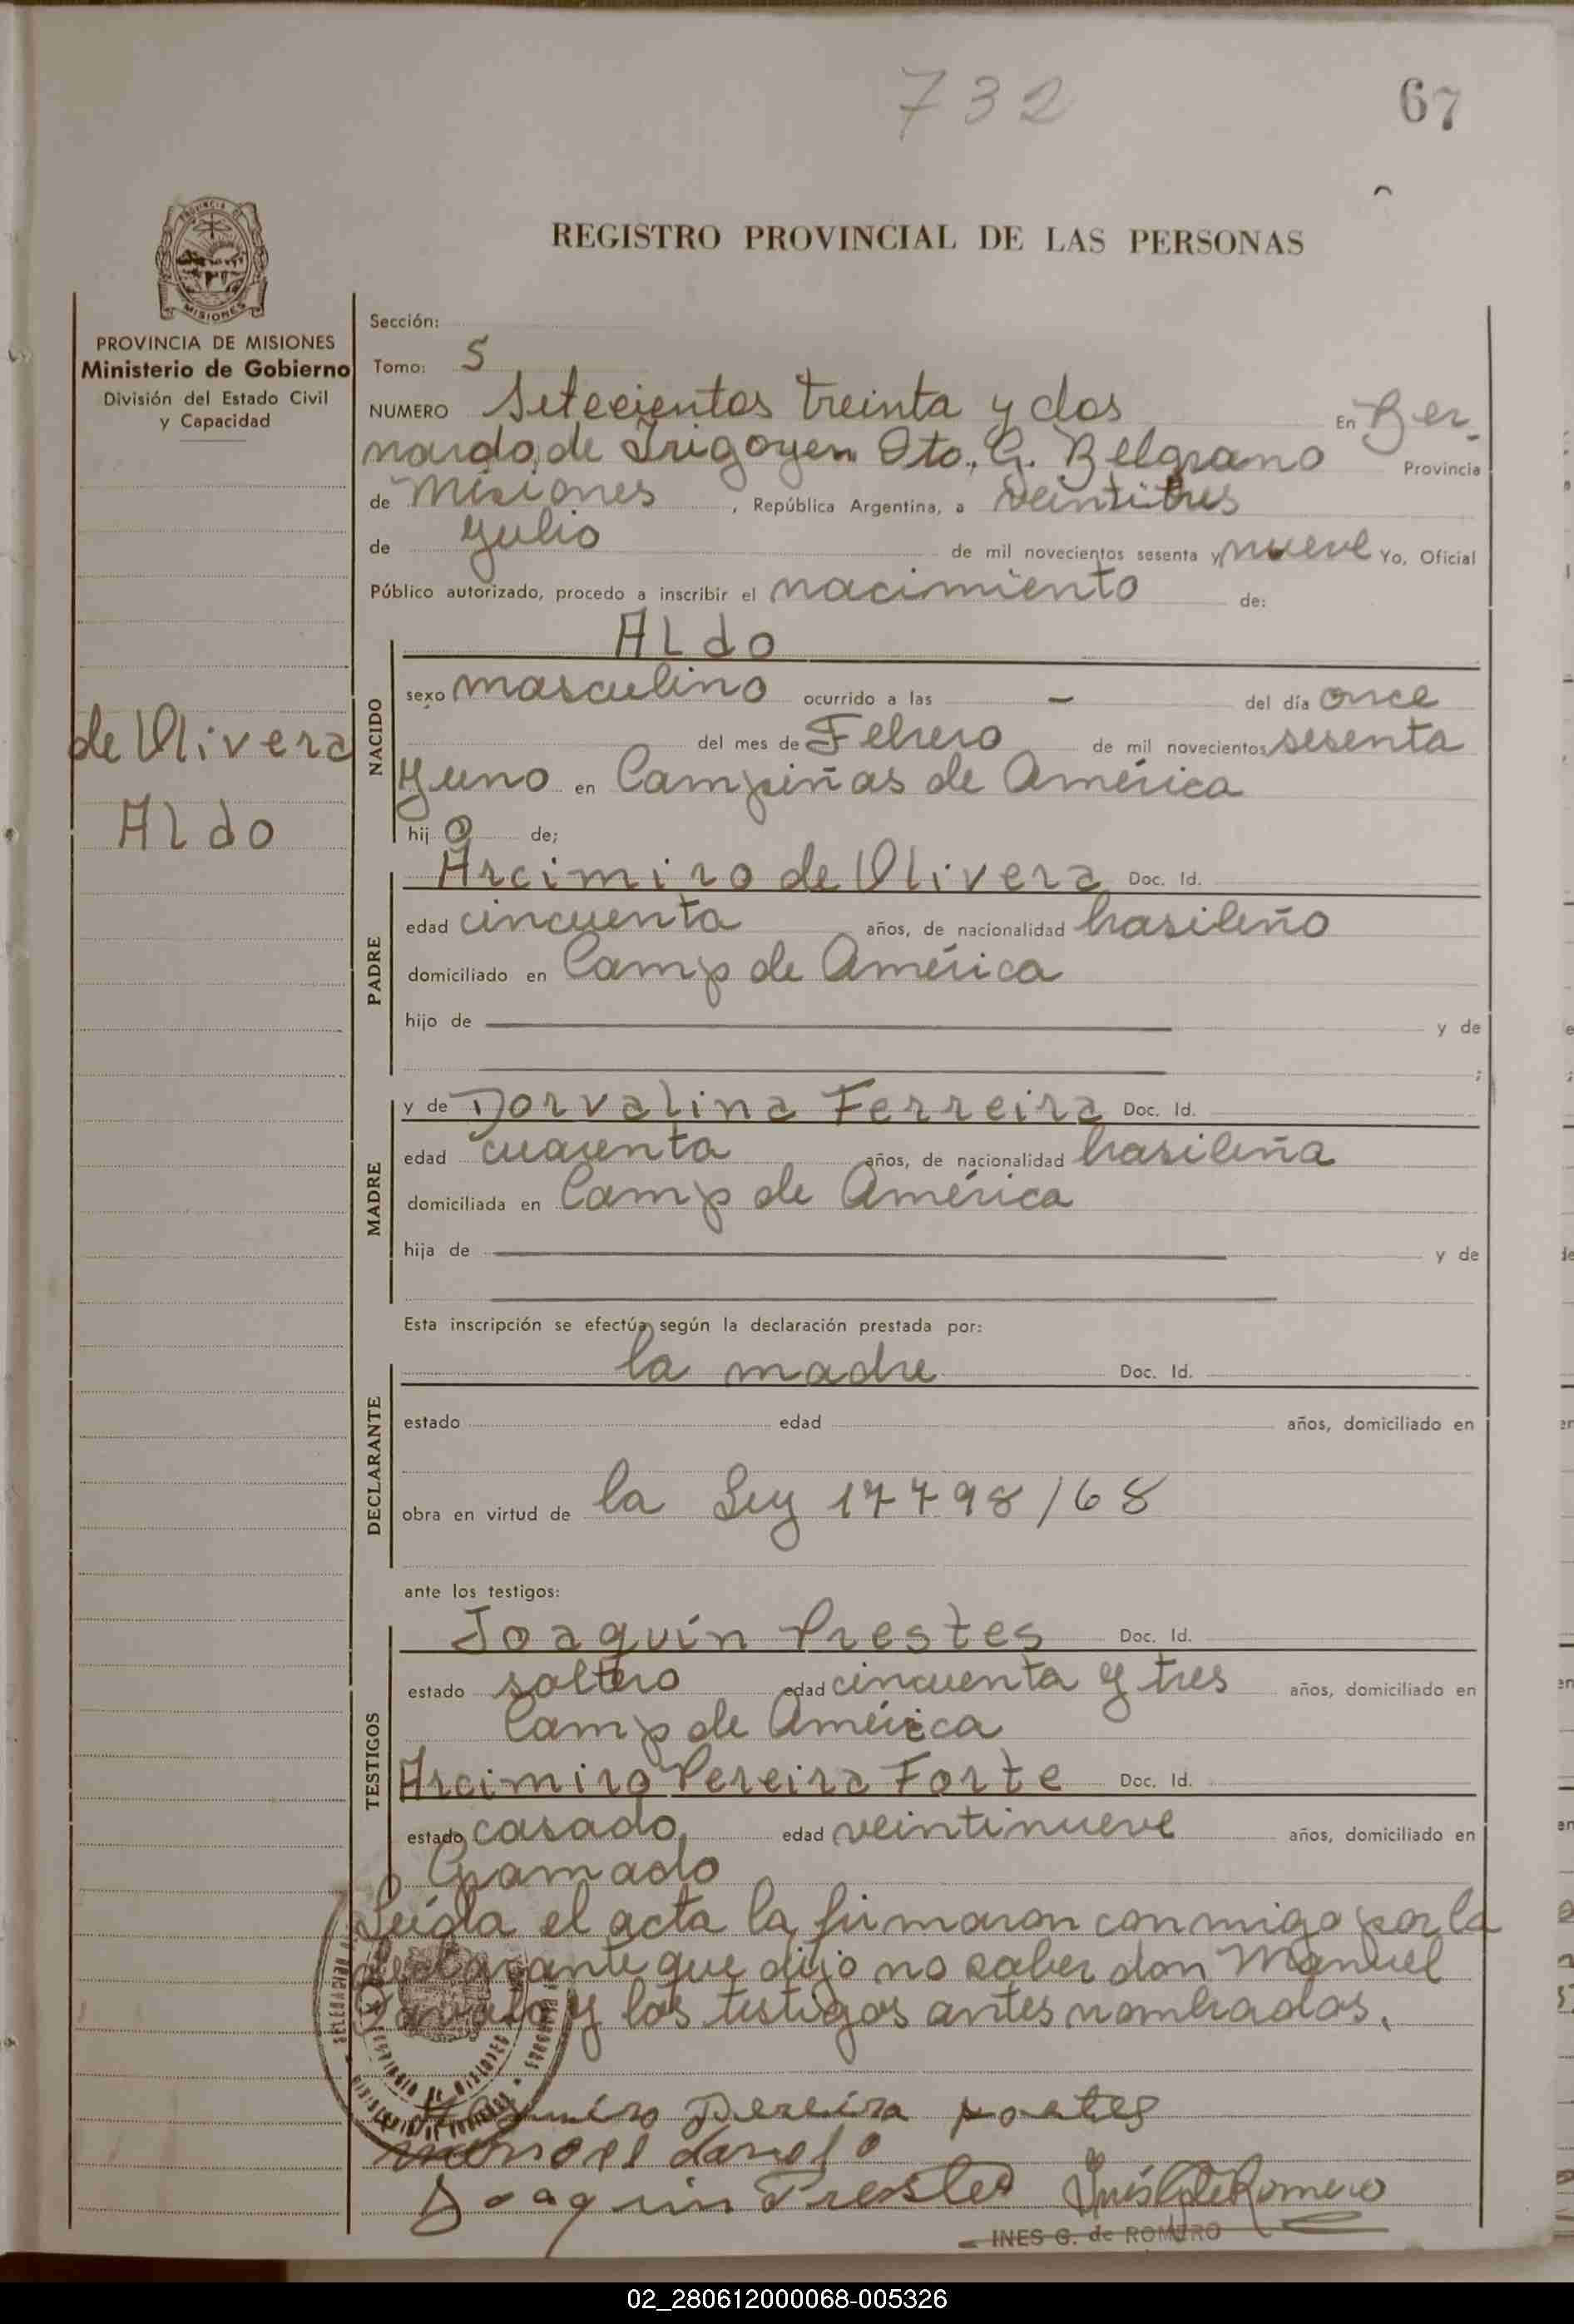 732
67
PROVINCIA DE
MISIONES
REGISTRO PROVINCIAL DE LAS PERSONAS
PROVINCIA DE MISIONES
Ministerio de Gobierno
División del Estado Civil
y Capacidad
de Olivera
Aldo
Sección:
Tomo: 5
NUMERO Setecientos treinta y dos En Ber-
nardo de Irigoyen Dto. G. Belgrano Provincia
de Misiones, República Argentina, a veintitres
de Julio de mil novecientos sesenta y nueve Yo, Oficial
Público autorizado, procedo a inscribir el nacimiento de:
NACIDO
Aldo
sexo masculino ocurrido a las - del día once
del mes de Febrero de mil novecientos sesenta
y uno en Campiñas de América
hijo de;
PADRE
Arcimiro de Olivera Doc. Id.
edad cincuenta años, de nacionalidad brasileño
domiciliado en Camp de América
hijo de y de
;
MADRE
y de Dorvalina Ferreira Doc. Id.
edad cuarenta años, de nacionalidad brasileña
domiciliada en Camp de América
hija de y de
Esta inscripción se efectúa según la declaración prestada por:
DECLARANTE
la madre Doc. Id.
estado edad años, domiciliado en
obra en virtud de la Ley 17798/68
ante los testigos:
TESTIGOS
Joaquín Prestes Doc. Id.
estado soltero edad cincuenta y tres años, domiciliado en
Camp de América
Arcimiro Pereira Forte Doc. Id.
estado casado edad veintinueve años, domiciliado en
Gramado
Leída el acta la firmaron conmigo por la
declarante que dijo no saber don Manuel
y los testigos antes nombrados.
Pereira
Joaquin Prestes Inés G de Romero
INES G. de ROMERO
02_280612000068-005326